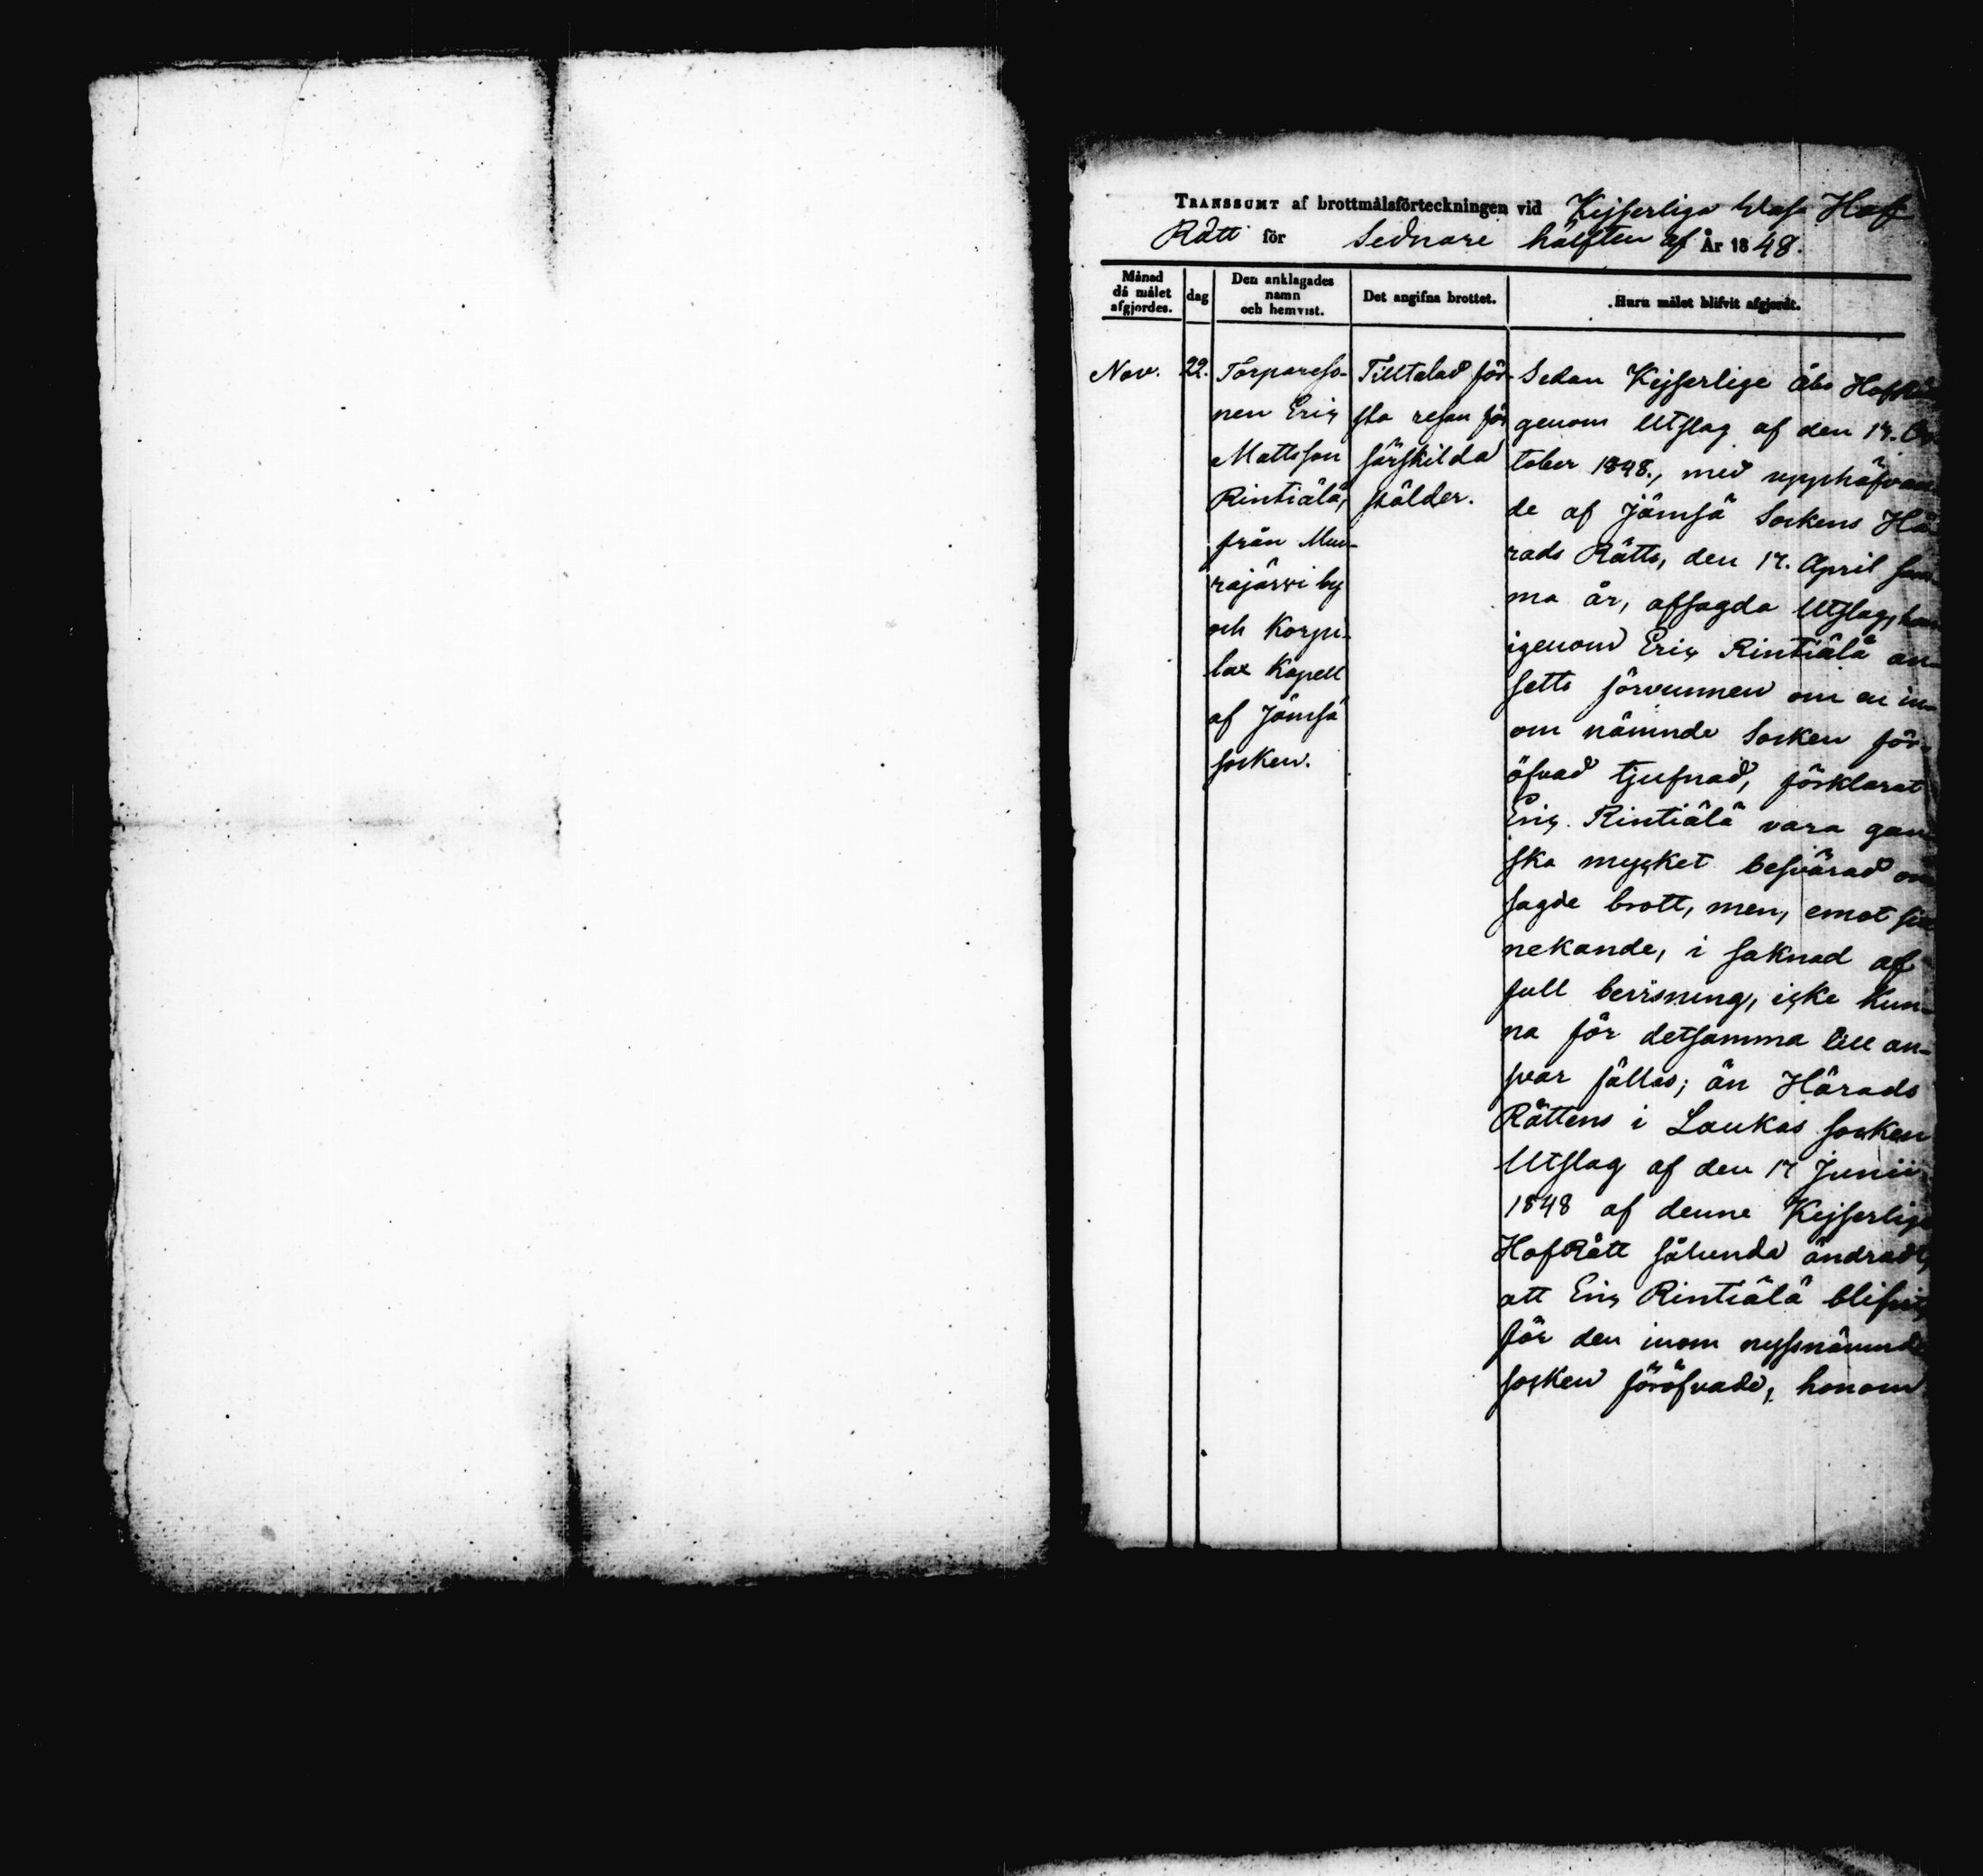 TRANSSUMT af brottmålsförteckningen vid Kejserliga Wasa Hof
Rätt för Sednare hälften af År 1848.
Månad då målet afgjordes.
dag
Den anklagades namn och hemvist.
Det angifna brottet.
Huru målet blifvit afgjordt.
Nov.
22.
Torpareso-
nen Eric
Mattsson
Rintiälä,
från Muu-
rajärvi by
och Korpi-
lax Kapell
af Jämsä
socken.
Tilltalad för-
sta resan för
särskilda
stölder.
Sedan Kejserlige Åbo HofRätt
genom Utslag af den 17. Oc-
tober 1848., med upphäfvan-
de af Jämsä Sockens Hä-
rads Rätts, den 17. April sam-
ma år, afsagda Utslag, har
igenom Eric Rintiälä an-
setts förvunnen om en in-
om nämnde Socken för-
öfvad tjufnad, förklarat
Eric Rintiälä vara gan-
ska mycket besvärad om
sagde brott, men, emot sitt
nekande, i saknad af
full bevisning, icke kun-
na för detsamma till an-
svar fällas; än Härads
Rättens i Laukas socken
Utslag af den 17 Junii
1848 af denne Kejserlige
HofRätt sålunda ändradt,
att Eric Rintiälä blifvit,
för den inom nyssnämnde
socken föröfvade, honom